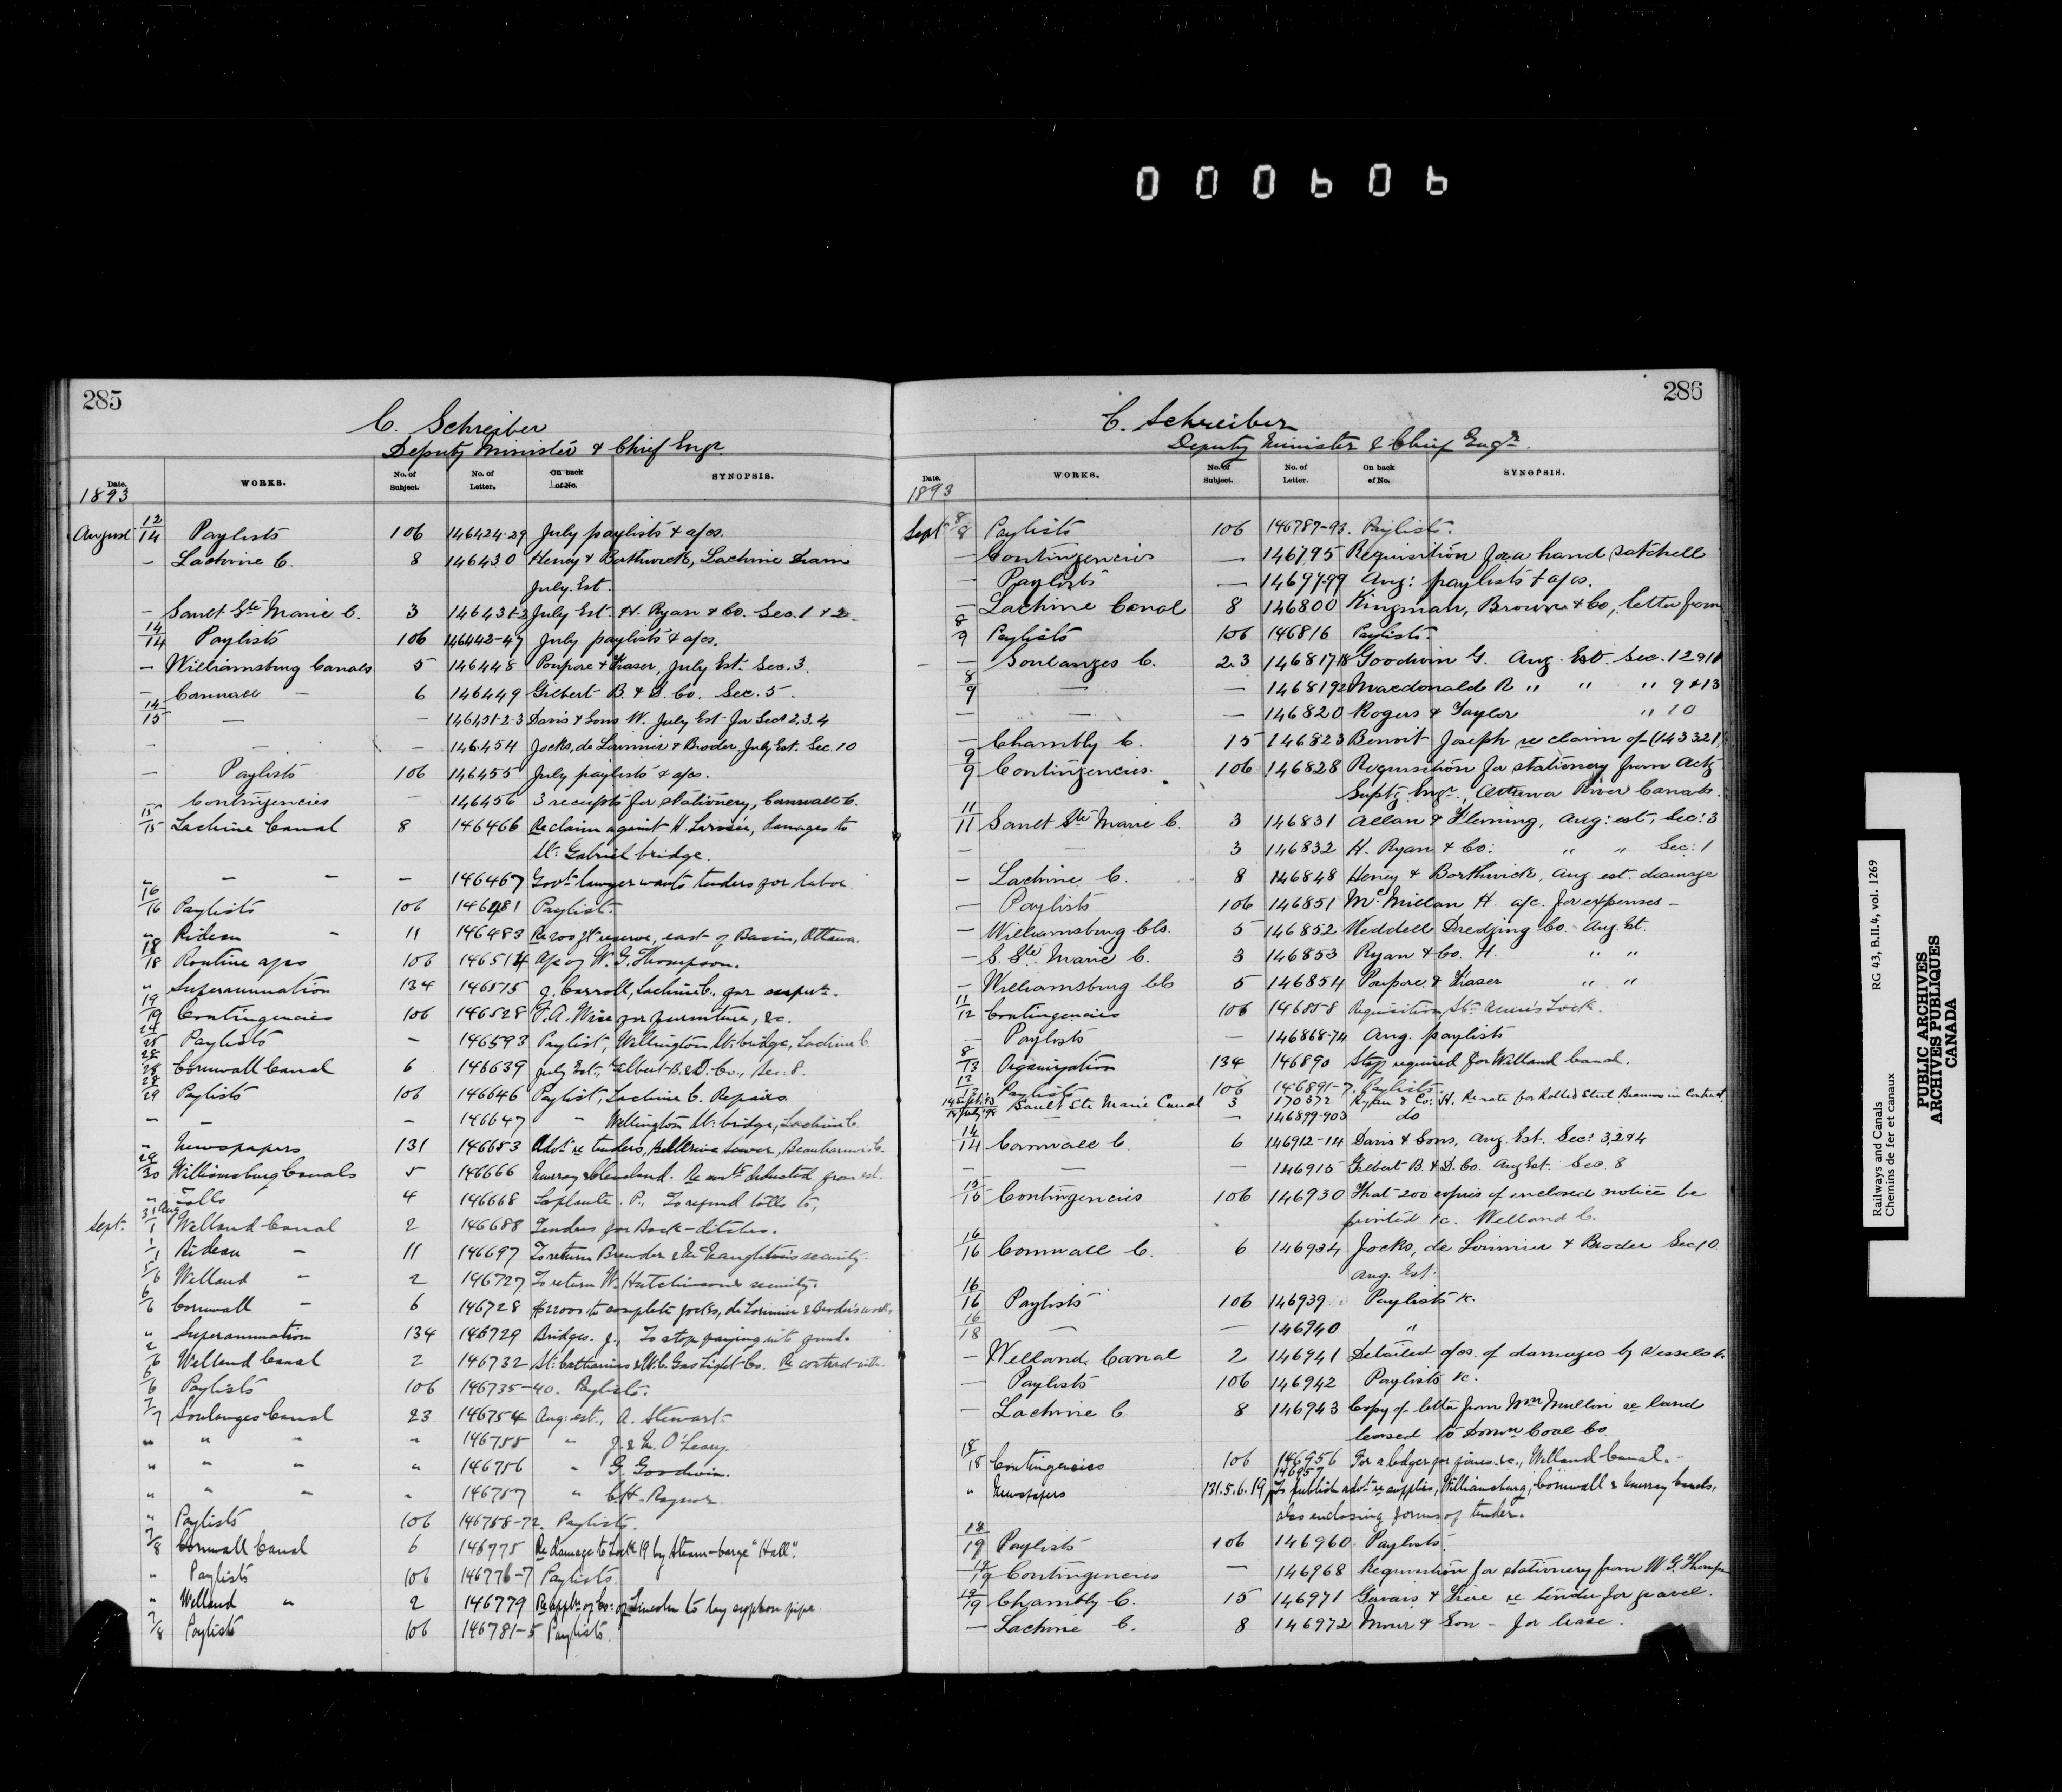 000606
285
C. Schreiber
Deputy Minister & Chief Engr
Date. WORKS. No. of Subject. No. of Letter. On back of No. SYNOPSIS.
1893
August 12/14 Paylists 106 146424-29 July paylists & a/cs.
— Lachine C. 8 146430 Henry & Borthwick, Lachine
July Est.
— Sault Ste Marie C. 3 146431-2 July Est. H. Ryan & Co. Sec. 1 & 2.
14/14 Paylists 106 146442-47 July paylists & a/cs.
— Williamsburg Canals 5 146448 Poupore & Fraser, July Est. Sec. 3.
— Cornwall — 6 146449 Gilbert B. & D. Co. Sec. 5
14/15 — — 146451-2-3 Davis & Sons W. July Est for Secs 2.3.4
— — — 146454 Jocks, de Lorimier & Broder, July Est. Sec. 10
— Paylists 106 146455 July paylists & a/cs.
Contingencies — 146456 3 receipts for stationery, Cornwall C.
15/15 Lachine Canal 8 146466 Re claim against H. damages to
St. Gabriel bridge.
" — — — 146467 Govt lawyer wants tenders for labor.
16/16 Paylists 106 146481 Paylist.
" Rideau — 11 146483 Re 200 ft reserve, east of Basin, Ottawa.
18/18 Routine a/cs 106 146514 A/c of W. G. Thompson.
" Superannuation 134 146515 J. Carroll, Lachine C., for
19/19 Contingencies 106 146528 F. A. Wise for furniture, &c.
24/25 Paylists — 146593 Paylist, Wellington St. bridge, Lachine C.
28/28 Cornwall Canal 6 146639 July Est., Gilbert B. & D. Co., Sec. 8.
28/29 Paylists 106 146646 Paylist, Lachine C. Repairs.
— — — 146647 " Wellington St. bridge, Lachine C.
" Newspapers 131 146653 Advt re tenders, Bellerive Beauharnois C.
29/30 Williamsburg Canals 5 146666 Murray & Cleveland. Re amts deducted from est.
" Tolls 4 146668 Laplante. P., To refund tolls to,
Sept. 31 Aug/1 Welland Canal 2 146688 Tenders for Back-ditches.
1/1 Rideau — 11 146697 To return Brewder & McNaughton's security
5/6 Welland — 2 146727 To return W. Hutchinson's security.
6/6 Cornwall — 6 146728 $22000 to complete Jocks, de Lorimier & Broder's works
" Superannuation 134 146729 Bridges. J., To stop paying into fund.
2/6 Welland Canal 2 146732 St. Catharines & W. C. Gas Light Co. Re contract with.
6/6 Paylists 106 146735-40. Paylists.
7/7 Soulanges Canal 23 146754 Aug: est., A. Stewart
" " " " 146755 " J. & M. O'Leary.
" " " " 146756 " G. Goodwin.
" " " " 146757 " C. H. Raynor
" Paylists 106 146758-72. Paylists.
7/8 Cornwall Canal 6 146775 Re damage to Lock 19 by Steam-barge "Hall".
" Paylists 106 146776-7 Paylists
" Welland " 2 146779 Re appln of Co: of Lincoln to lay syphon pipe.
7/8 Paylists 106 146781-5 Paylists.
286
C. Schreiber
Deputy Minister & Chief Engr.
Date. WORKS. No. of Subject. No. of Letter. On back of No. SYNOPSIS.
1893
Sept 8/8 Paylists 106 146787-93. Paylists.
— Contingencies — 146795 Requisition for a hand satchell
— Paylists — 14697-99 Aug: paylists & a/cs.
— Lachine Canal 8 146800 Kingman, Brown & Co, letter from
8/9 Paylists 106 146816 Paylists.
— Soulanges C. 2.3 14681718 Goodwin G. Aug. Est. Sec. 12 & 11
8/9 — — 1468192 Macdonald R " " " 9 & 13
— — — 146820 Rogers & Taylor " 10
— Chambly C. 15 146823 Benoit Joseph re claim of (143321)
9/9 Contingencies. 106 146828 Requisition for stationery from Actg
Suptg Engr., Ottawa River Canals.
11/11 Sault Ste Marie C. 3 146831 Allan & Fleming, Aug: est, Sec: 3
— — 3 146832 H. Ryan & Co: " " Sec: 1
— Lachine C. 8 146848 Henry & Borthwick, Aug. est. drainage
— Paylists 106 146851 McMillan H. a/c. for expenses —
— Williamsburg Cls. 5 146852 Weddell Dredging Co. Aug. Est.
— S. Ste. Marie C. 3 146853 Ryan & Co. H. " "
— Williamsburg Cls 5 146854 Poupore & Fraser " "
11/12 Contingencies 106 146858 Requisition, Ste Anne's Lock.
— Paylists — 146868-74 Aug. paylists
8/13 Organization 134 146890 Staff required for Welland Canal.
12/13 Paylists 106 146891-7. Paylists.
Sault Ste Marie Canal 3 170372 Ryan & Co: H. Re rate for Rolled Steel Beams in Contract.
— 146899-903 do
14/14 Cornwall C. 6 146912-14 Davis & Sons, Aug. Est. Secs 3, 2 & 4
— — — 146915 Gilbert B. & D. Co. Aug Est. Sec. 8
15/15 Contingencies 106 146930 That 200 copies of enclosed notice be
printed &c. Welland C.
16/16 Cornwall C. 6 146934 Jocks, de Lorimier & Broder Sec 10.
Aug. Est.
16/16 Paylists 106 146939 Paylists &c.
16/18 — — 146940 "
— Welland Canal 2 146941 Detailed a/cs. of damages by vessels &c
— Paylists 106 146942 Paylists &c.
— Lachine C 8 146943 Copy of letter from Wm Mullin re land
leased to Domn Coal Co.
18/18 Contingencies 106 146956 For a ledger for &c., Welland Canal.
146957
" Newspapers 131.5.6.19 To publish advt re supplies, Williamsburg, Cornwall & Murray Canals,
also enclosing forms of tender.
18/19 Paylists 106 146960 Paylists.
19/19 Contingencies — 146968 Requisition for stationery from W. G. Thompson
19/19 Chambly C. 15 146971 Gervais & Frère re tender for gravel.
— Lachine C. 8 146972 & Son — for lease.
Railways and Canals RG 43, B.II.4, vol. 1269
Chemins de fer et canaux
PUBLIC ARCHIVES
ARCHIVES PUBLIQUES
CANADA